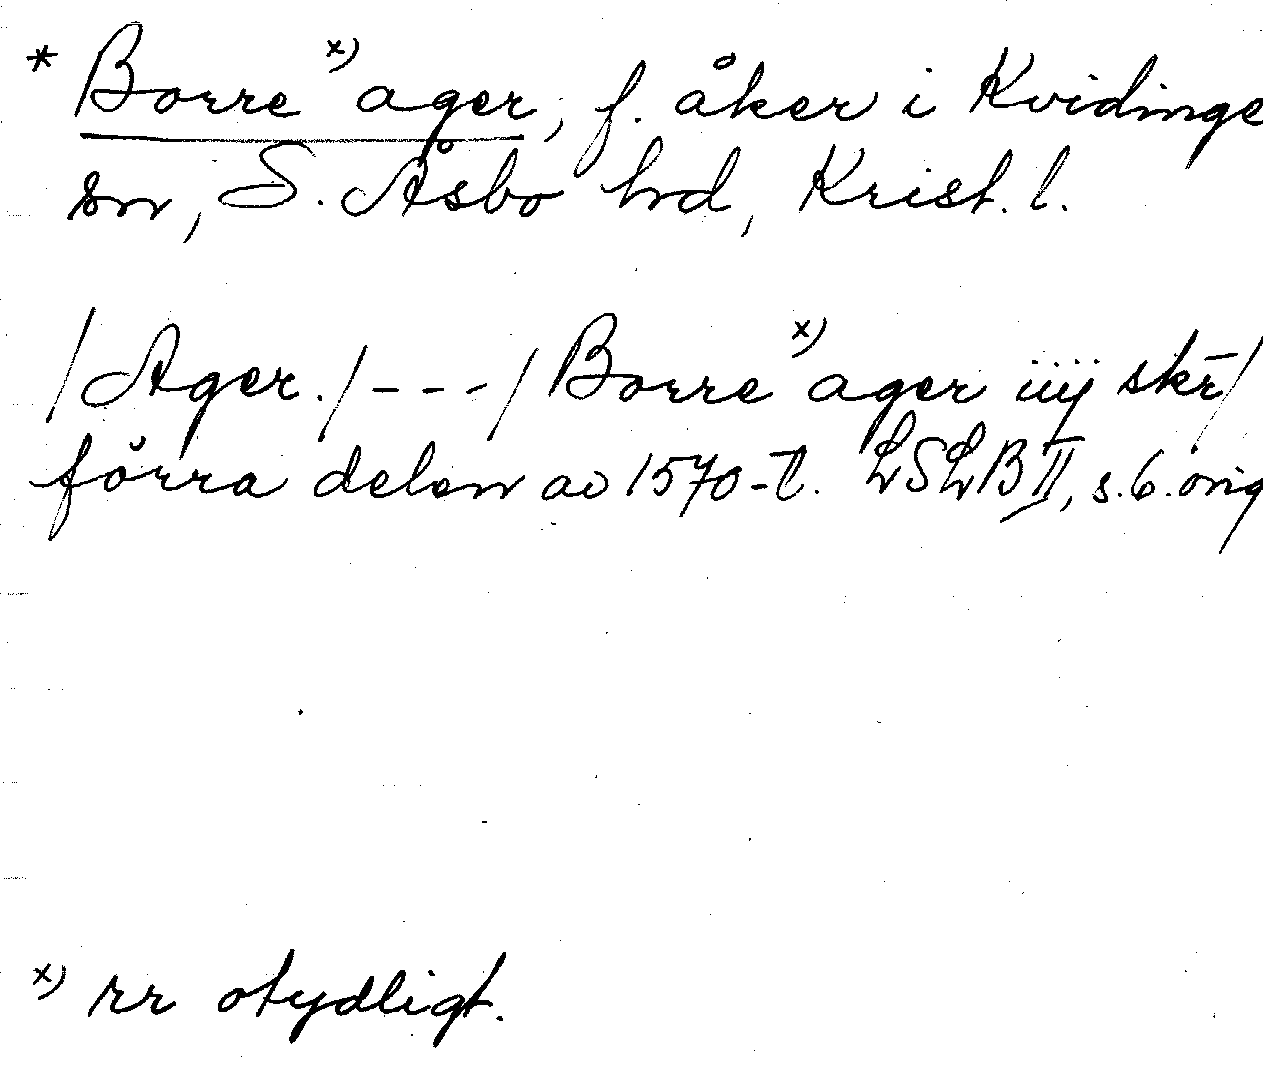 * Borre x) ager, f. åker i Kvidinge
sn, S. Åsbo hd, Krist. l.
/Ager./---/Borre x) ager iiij skr̄/
förra delen av 1570-t. LSLB II, s. 6. orig
x) rr otydligt.